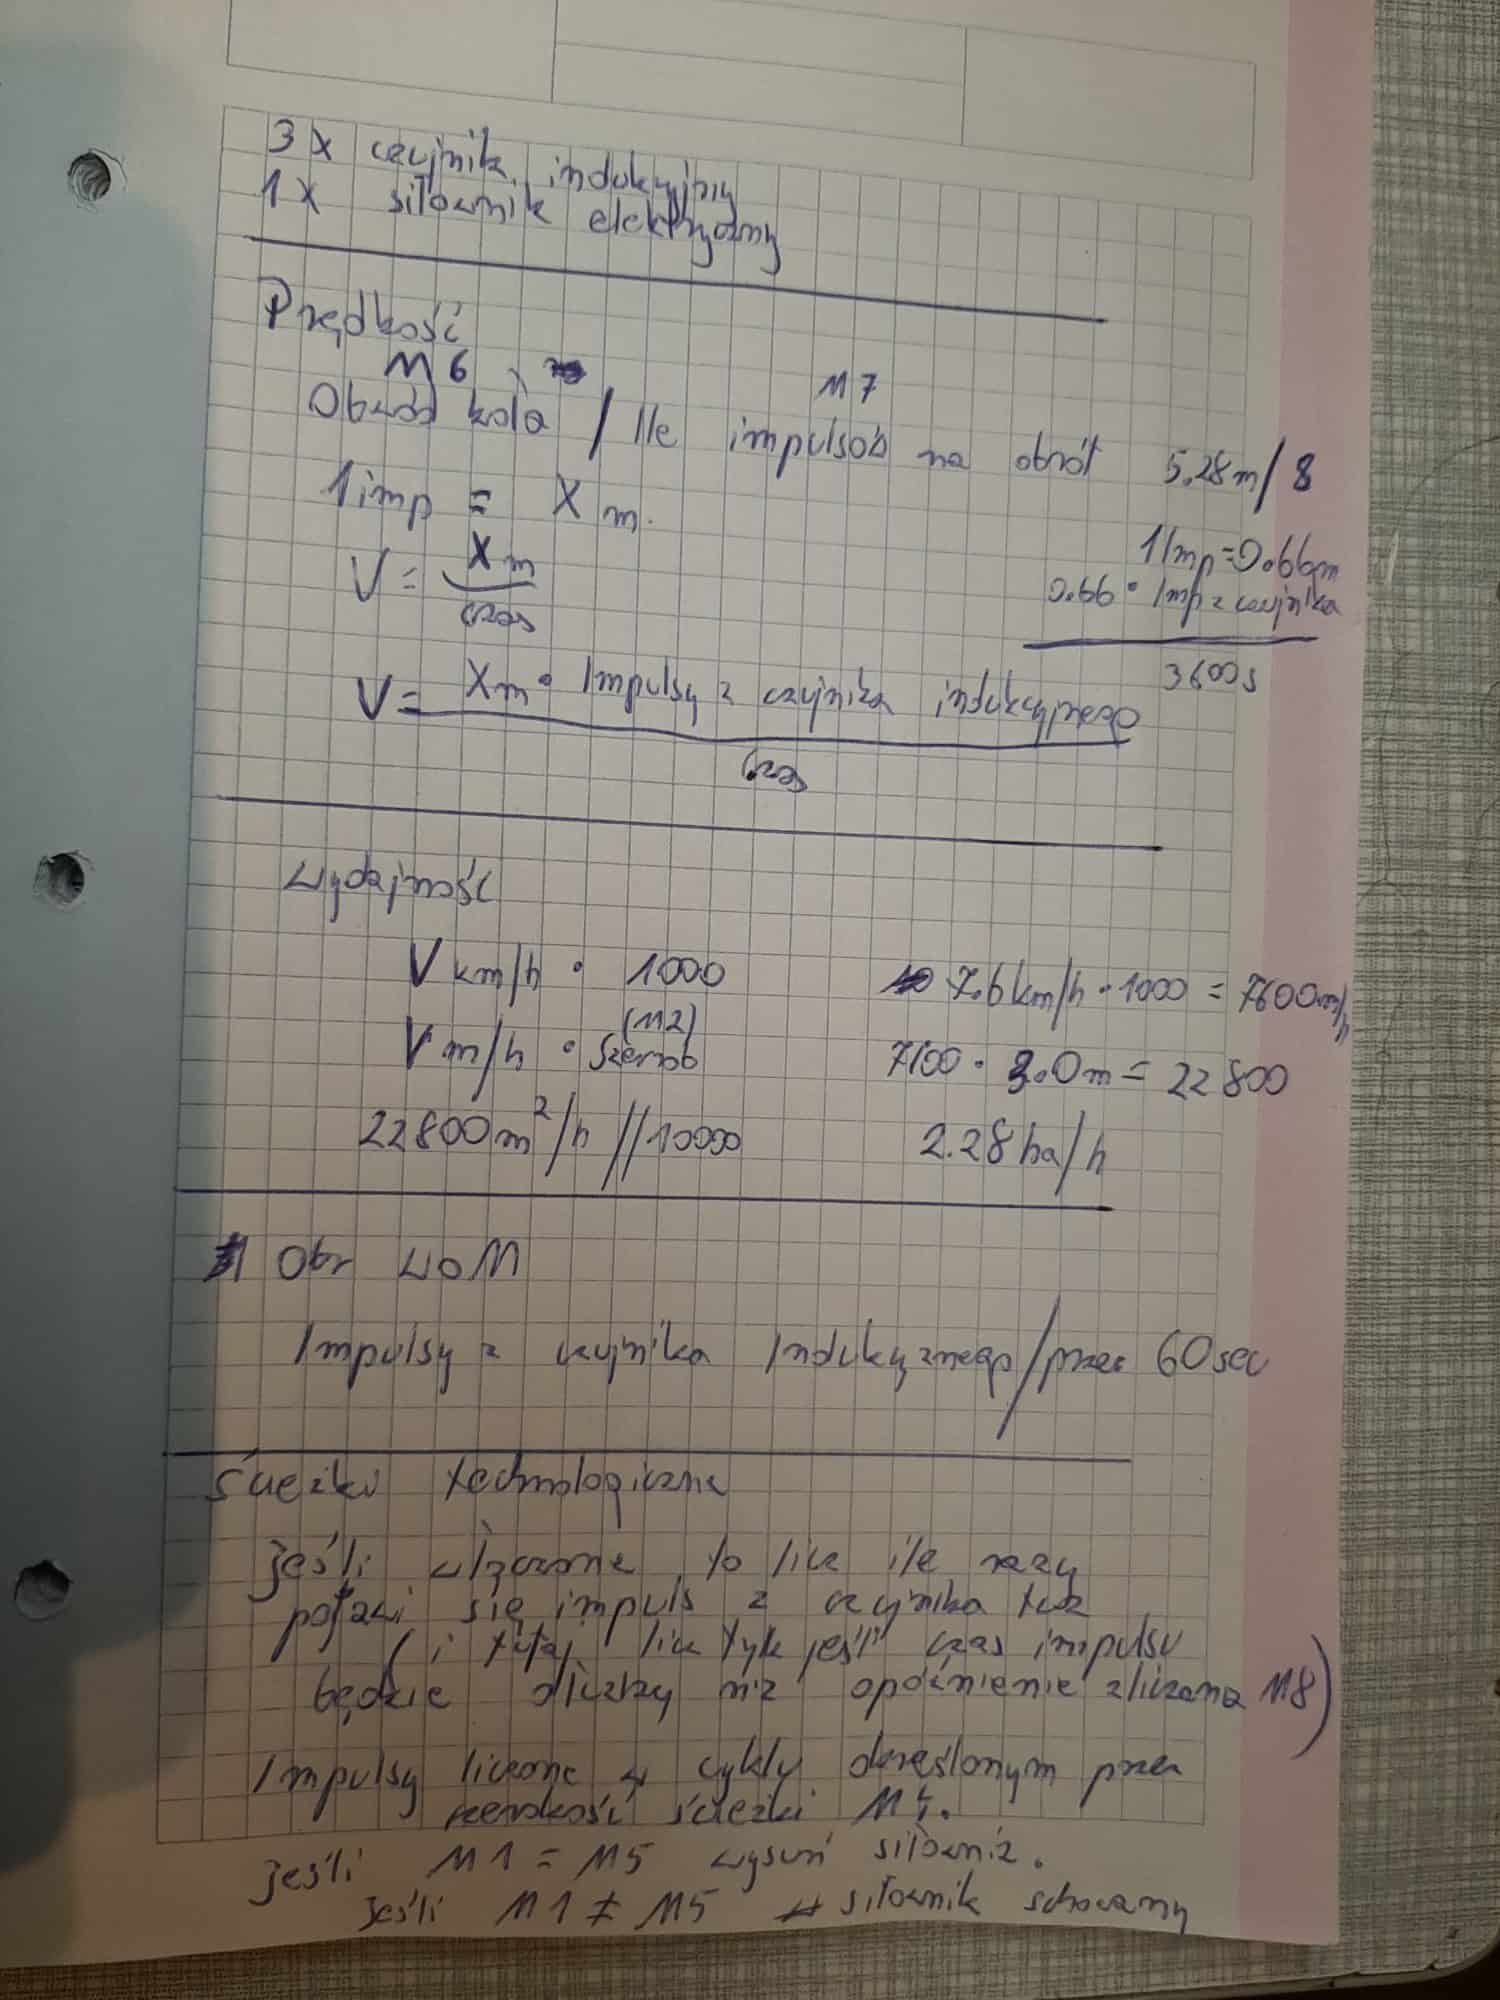 3x czujnik indukcyjny
1x siłownik elektryczny
Prędkość
M6 M7
Obwód koła / Ile impulsów na obrót 5.28m/8
1imp = X m. 1Imp=0.66m
V = Xm / czas 0.66 • Imp z czujnika
3600s
V = Xm • Impulsy z czujnika indukcyjnego
czas
Wydajność
V km/h • 1000 7.6km/h • 1000 = 7600m/h
(M2)
V m/h • szerrob 7600 • 3.0m = 22800
22800m²/h //10000 2.28ha/h
Obr WOM
Impulsy z czujnika Indukcyznego/przez 60sec
Ścieżki technologiczne
jeśli włączone to licz ile razy
pojawi się impuls z czujnika
(i tutaj licz tyk jeśli czas impulsu
będzie dłuższy niż opóźnienie zliczana M8)
Impulsy liczone w cykly określonym przez
szerokość ścieżki M4.
jeśli M1 = M5 wysuń siłownik.
Jeśli M1 ≠ M5 siłownik schowany